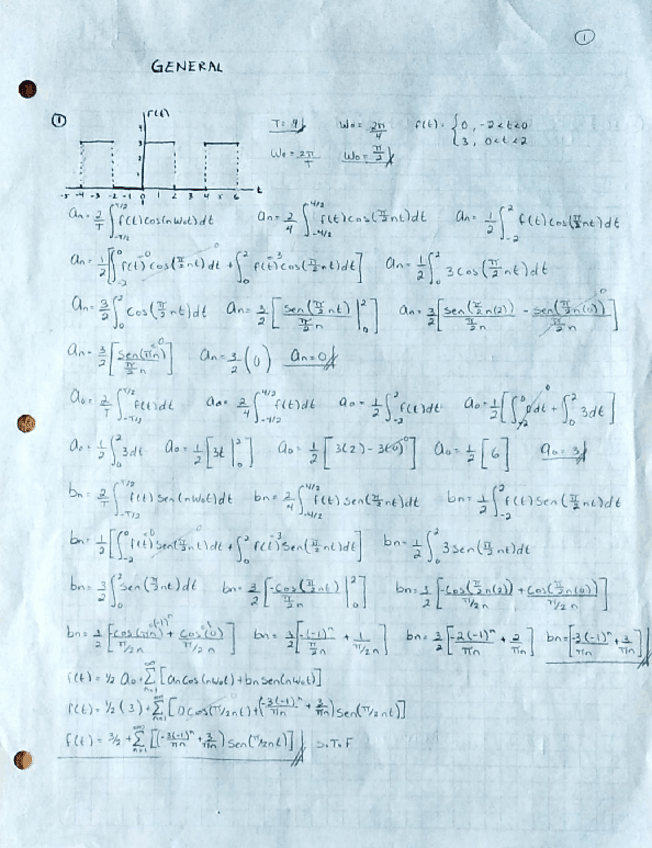 1
GENERAL
① f(t) T= 4 Wo = 2π/4 f(t) = { 0, -2<t<0
Wo = 2π/T Wo = π/2 3, 0<t<2
-5 -4 -3 -2 -1 0 1 2 3 4 5 6 t
an = 2/T ∫_{-T/2}^{T/2} f(t) cos(nwot)dt an = 2/4 ∫_{-4/2}^{4/2} f(t) cos(π/2 nt)dt an = 1/2 ∫_{-2}^{2} f(t) cos(π/2 nt)dt
an = 1/2 [∫_{-2}^{0} f(t) cos(π/2 nt)dt + ∫_{0}^{2} f(t) cos(π/2 nt)dt] an = 1/2 ∫_{0}^{2} 3 cos(π/2 nt)dt
an = 3/2 ∫_{0}^{2} cos(π/2 nt)dt an = 3/2 [sen(π/2 nt)/(π/2 n) |_{0}^{2}] an = 3/2 [sen(π/2 n(2))/(π/2 n) - sen(π/2 n(0))/(π/2 n)]
an = 3/2 [sen(πn)/(π/2 n)] an = 3/2 (0) an = 0
ao = 2/T ∫_{-T/2}^{T/2} f(t)dt ao = 2/4 ∫_{-4/2}^{4/2} f(t)dt ao = 1/2 ∫_{-2}^{2} f(t)dt ao = 1/2 [∫_{-2}^{0} 0dt + ∫_{0}^{2} 3dt]
ao = 1/2 ∫_{0}^{2} 3dt ao = 1/2 [3t |_{0}^{2}] ao = 1/2 [3(2) - 3(0)] ao = 1/2 [6] ao = 3
bn = 2/T ∫_{-T/2}^{T/2} f(t) sen(nwot)dt bn = 2/4 ∫_{-4/2}^{4/2} f(t) sen(π/2 nt)dt bn = 1/2 ∫_{-2}^{2} f(t) sen(π/2 nt)dt
bn = 1/2 [∫_{-2}^{0} f(t) sen(π/2 nt)dt + ∫_{0}^{2} f(t) sen(π/2 nt)dt] bn = 1/2 ∫_{0}^{2} 3 sen(π/2 nt)dt
bn = 3/2 ∫_{0}^{2} sen(π/2 nt)dt bn = 3/2 [-cos(π/2 nt)/(π/2 n) |_{0}^{2}] bn = 3/2 [-cos(π/2 n(2))/(π/2 n) + cos(π/2 n(0))/(π/2 n)]
bn = 3/2 [-cos(πn)/(π/2 n) + cos(0)/(π/2 n)] bn = 3/2 [-(-1)^n/(π/2 n) + 1/(π/2 n)] bn = 3/2 [-2(-1)^n/πn + 2/πn] bn = [-3(-1)^n/πn + 3/πn]
f(t) = 1/2 ao + Σ_{n=1}^{∞} [an cos(nwot) + bn sen(nwot)]
f(t) = 1/2 (3) + Σ_{n=1}^{∞} [0 cos(π/2 nt) + (-3(-1)^n/πn + 3/πn) sen(π/2 nt)]
f(t) = 3/2 + Σ_{n=1}^{∞} [(-3(-1)^n/πn + 3/πn) sen(π/2 nt)] S.T.F